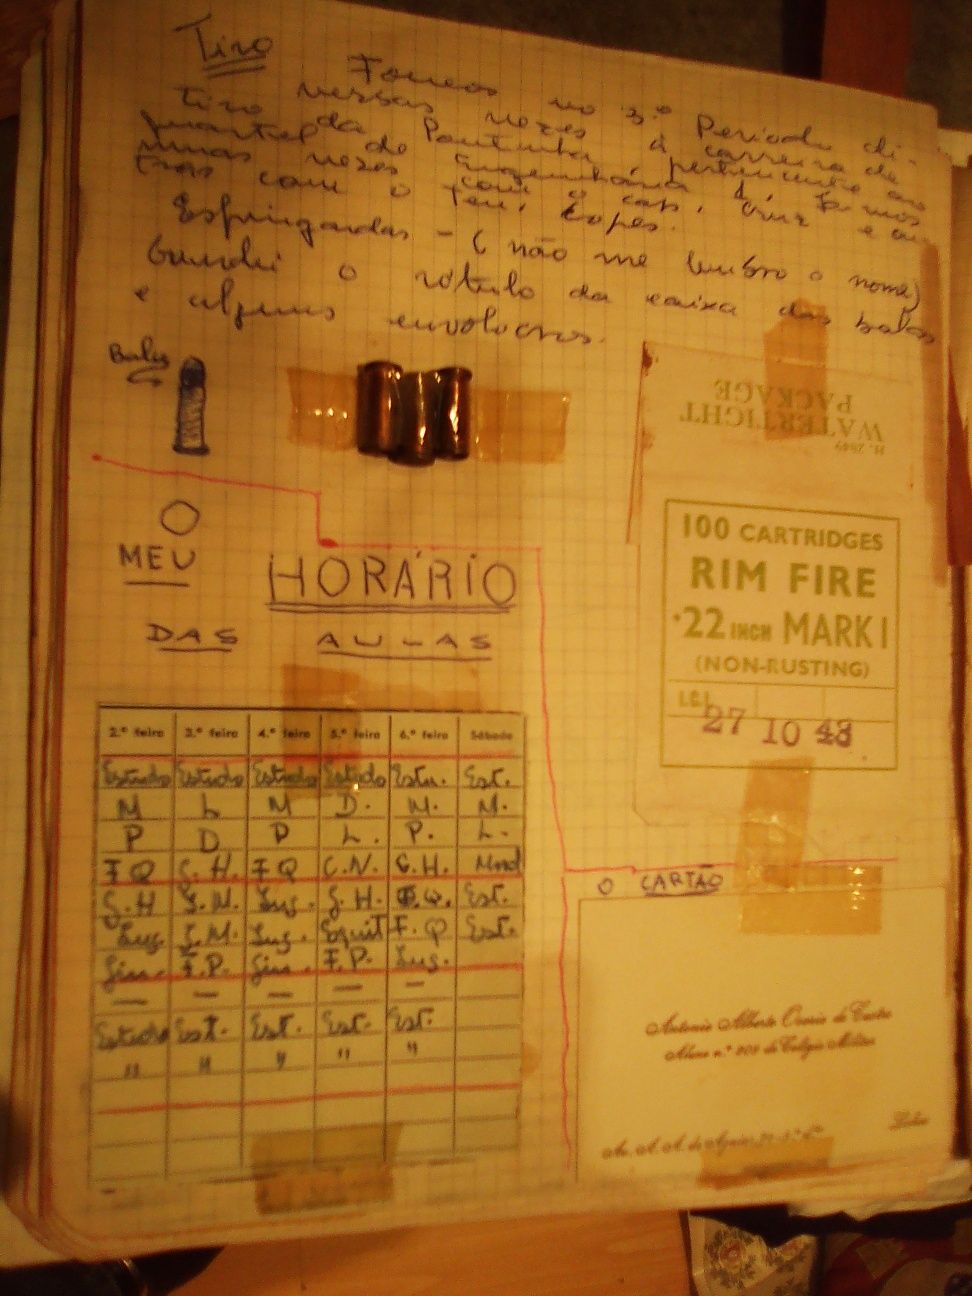 Tiro
Fomos no 3.º Periodo di-
versas vezes à carreira de
tiro da Pontinha, pertencente ao
quartel de Engenharia 1. Fomos
umas vezes com o cap. Cruz e ou-
tras com o Ten. Lopes.
Espingardas - (não me lembro o nome)
Guardei o rótulo da caixa das balas
e alguns envolucros.
Balas
H. 2849
WATERTIGHT
PACKAGE
100 CARTRIDGES
RIM FIRE
.22 INCH MARK I
(NON-RUSTING)
I.C.I.
27 10 48
O
MEU HORÁRIO
DAS AULAS
2.ª feira 3.ª feira 4.ª feira 5.ª feira 6.ª feira Sábado
Estudo Estudo Estudo Estudo Estu. Est.
M L M D. M. M.
P D P L. P. L.
F Q C.H. F Q C.N. G.H. Mord
G.H I.M. Ing. G.H. F.Q. Est.
Ing. I.M. Ing. Equit F.Q Est.
Gin. F.P. Gin. F.P. Ing.
— — — — —
Estudo Est. Est. Est. Est.
" " " " "
O CARTÃO
Antonio Alberto Osorio de Castro
Aluno n.º 209 do Colégio Militar
Av. A. A. de Aguiar,
Lisboa